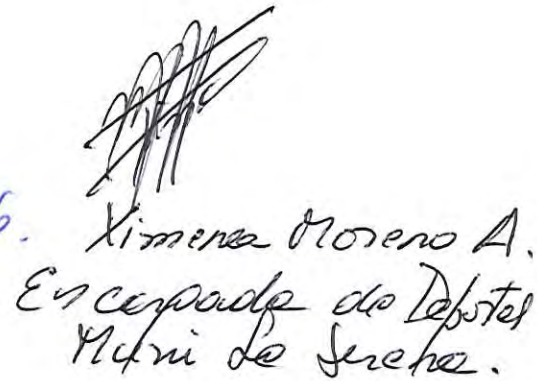 6.
Ximena Moreno A.
Encargada de Deportes
Muni La Serena.